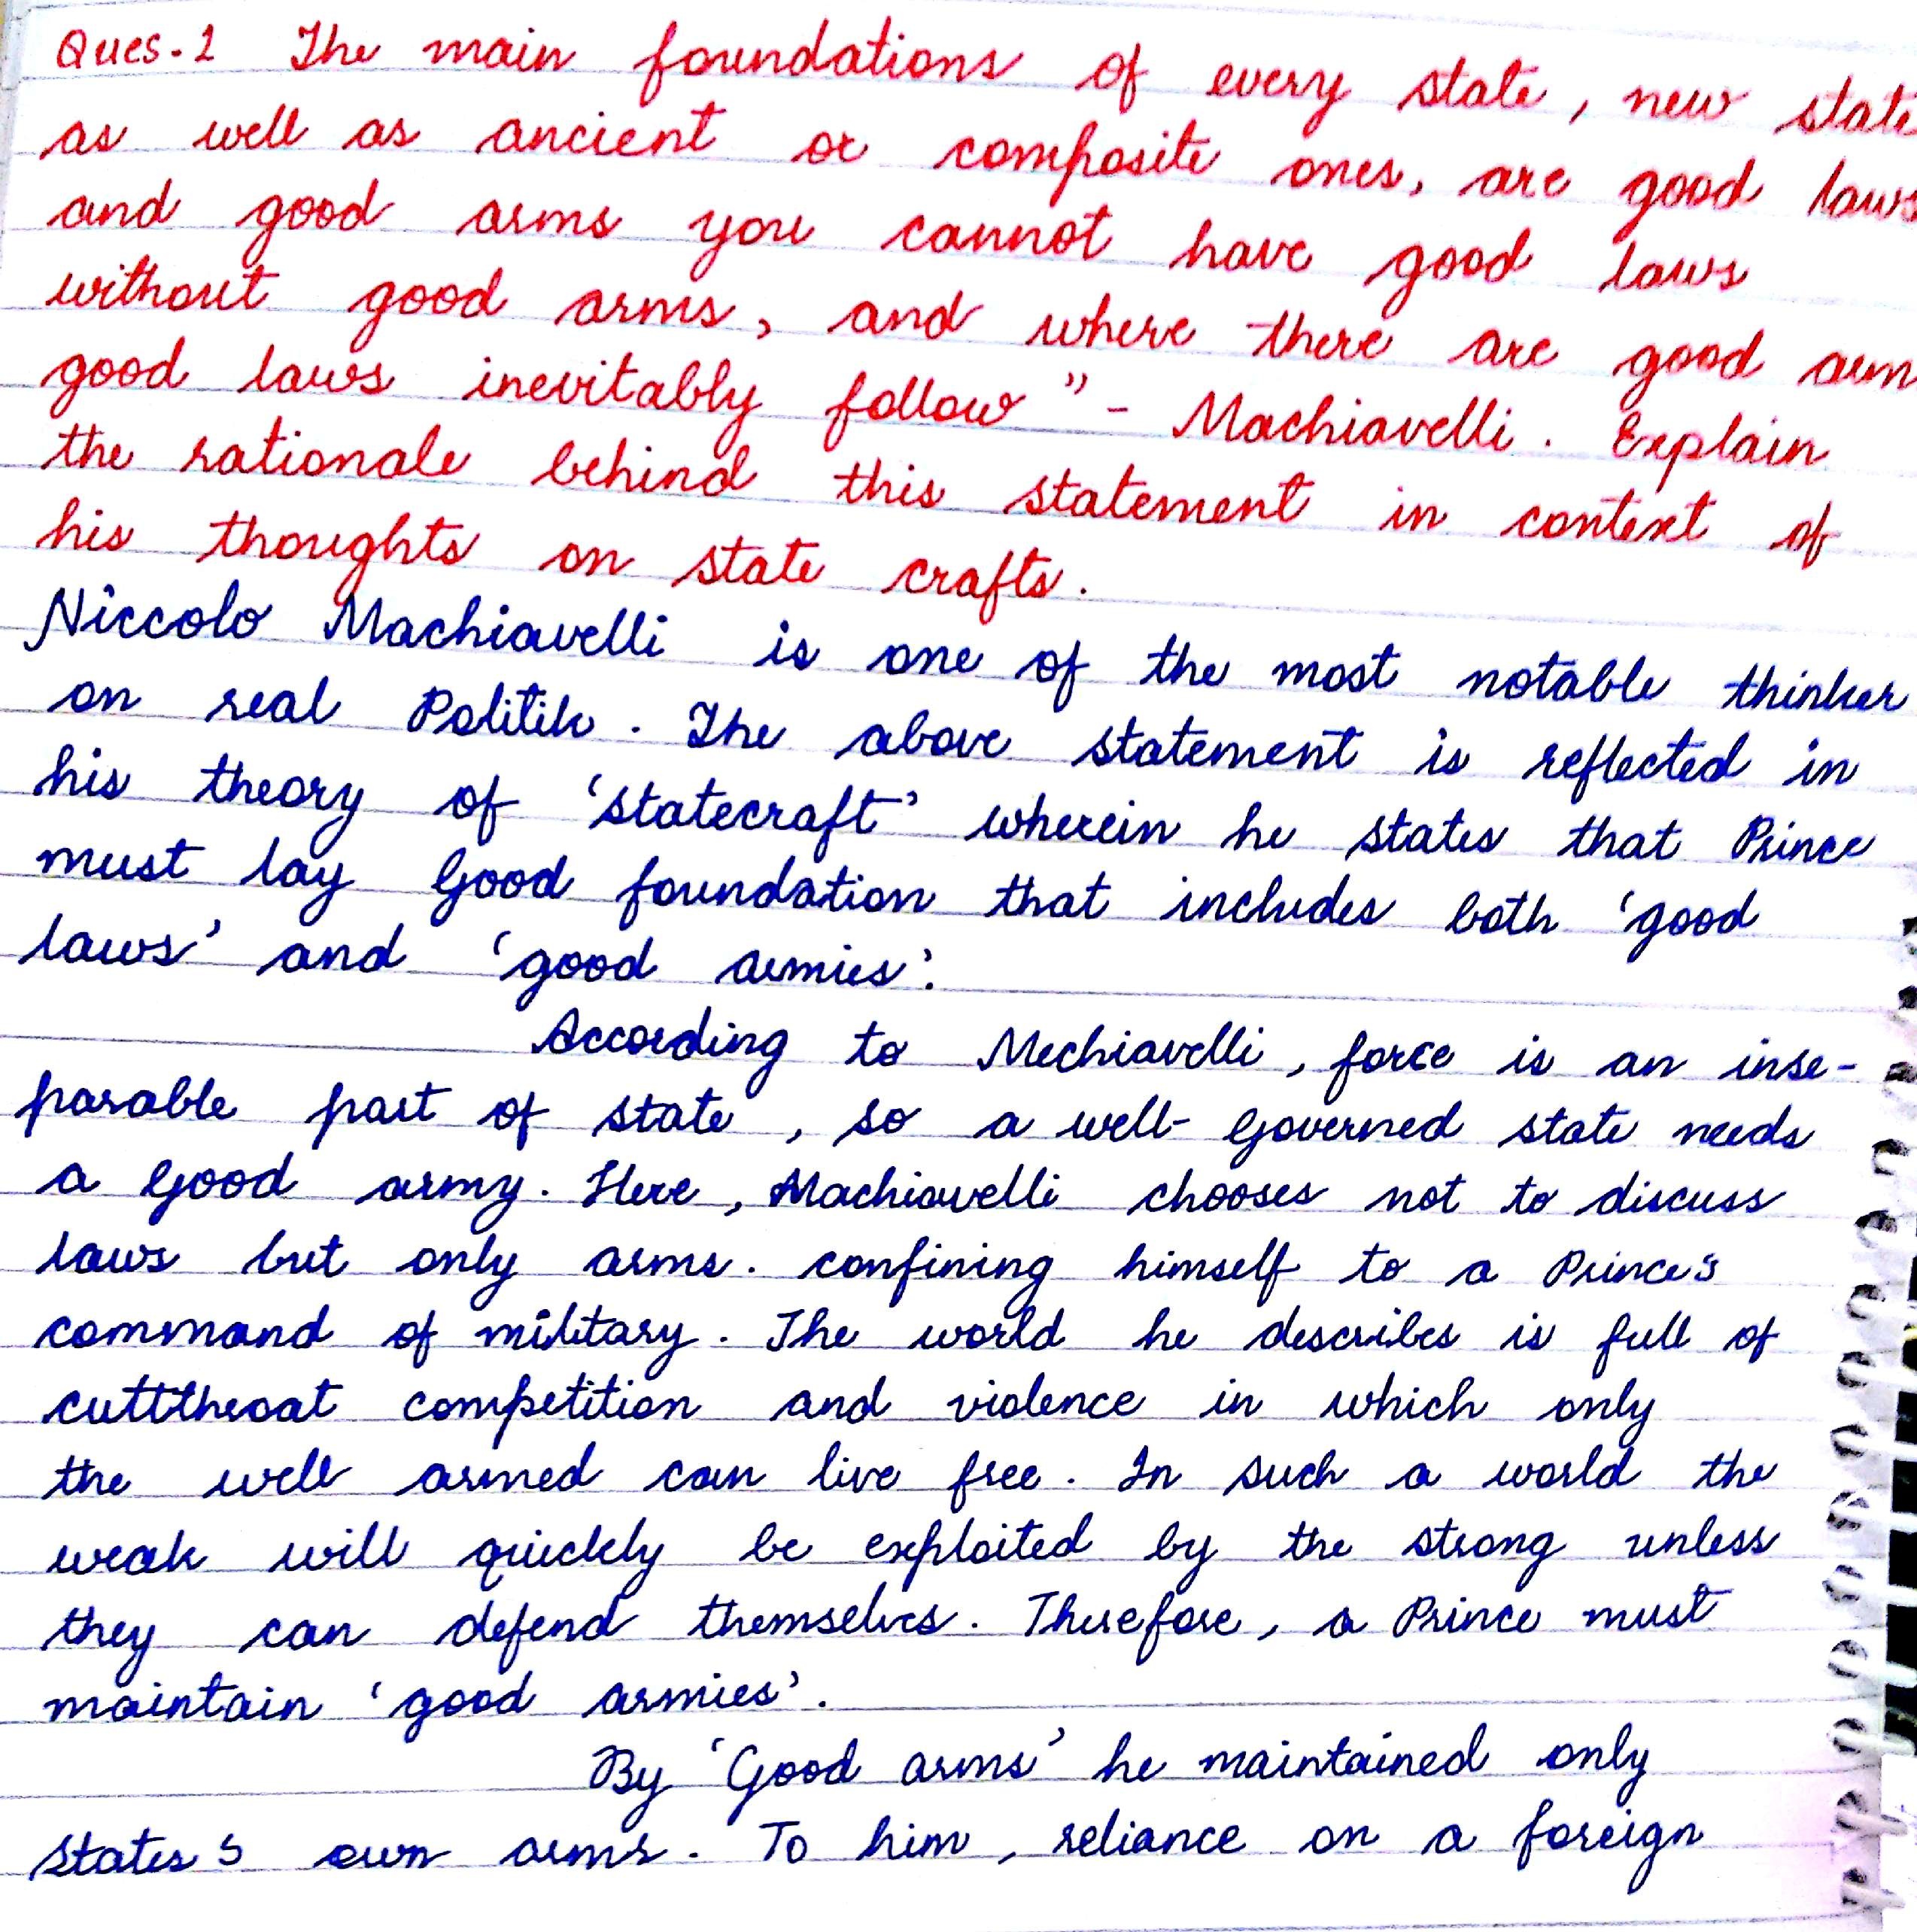 Ques-1 The main foundations of every state, new state
as well as ancient or composite ones, are good laws
and good arms you cannot have good laws
without good arms, and where there are good arm
good laws inevitably follow" - Machiavelli. Explain
the rationale behind this statement in context of
his thoughts on state crafts.
Niccolo Machiavelli is one of the most notable thinker
on real Politik. The above statement is reflected in
his theory of 'statecraft' wherein he states that Prince
must lay Good foundation that includes both 'good
laws' and 'good armies'.
According to Mechiavelli, force is an inse-
parable part of state, so a well-Governed state needs
a Good army. Here, Machiavelli chooses not to discuss
laws but only arms. confining himself to a Prince's
command of military. The world he describes is full of
cuttthroat competition and violence in which only
the well armed can live free. In such a world the
weak will quickly be exploited by the strong unless
they can defend themselves. Therefore, a Prince must
maintain 'good armies'.
By 'Good arms' he maintained only
states's own arms. To him, reliance on a foreign